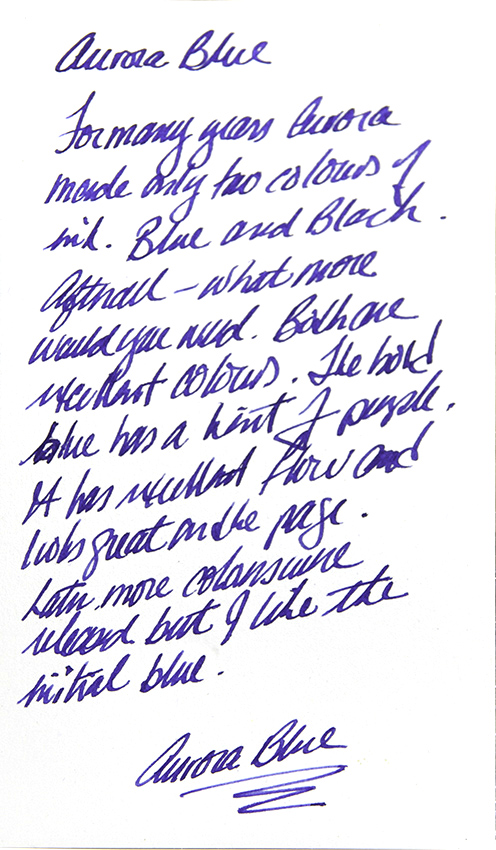 Aurora Blue
For many years Aurora
made only two colours of
ink. Blue and Black.
Afterall - what more
would you need. Both are
excellent colours. The bold
blue has a hint of purple.
It has excellent flow and
looks great on the page.
Later more colours were
released but I like the
initial blue.
Aurora Blue